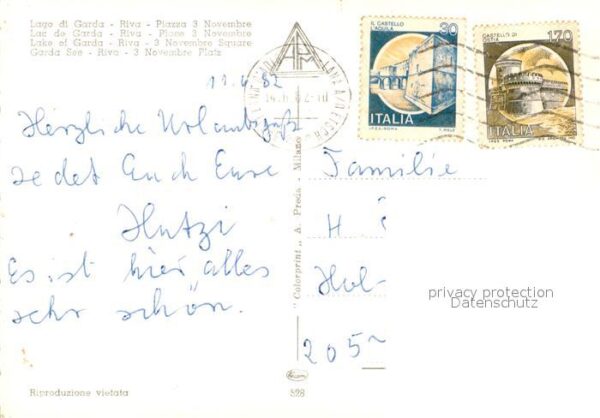 Lago di Garda - Riva - Piazza 3 Novembre
Lac de Garda - Riva - Place 3 Novembre
Lake of Garda - Riva - 3 Novembre Square
Garda See - Riva - 3 Novembre Platz
11.6.82
Herzliche Urlaubsgrüß
Euch Eure
Hutzi
Es ist hier alles
sehr schön.
Riproduzione vietata
"Colorprint" A. Preda - Milano
528
IL CASTELLO
L'AQUILA
30
ITALIA
CASTELLO DI
OSTIA
170
ITALIA
Familie
H
Hol-
205
privacy protection
Datenschutz